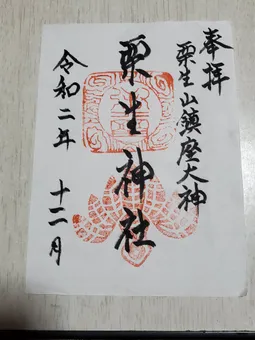 奉拝
粟生山鎮座大神
粟生神社
令和二年
十二月